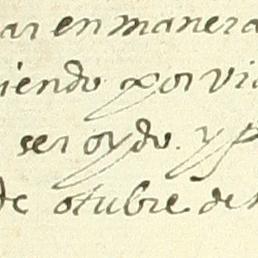 ar en manera
iendo por vi
ser oydo. y p
de otubre de